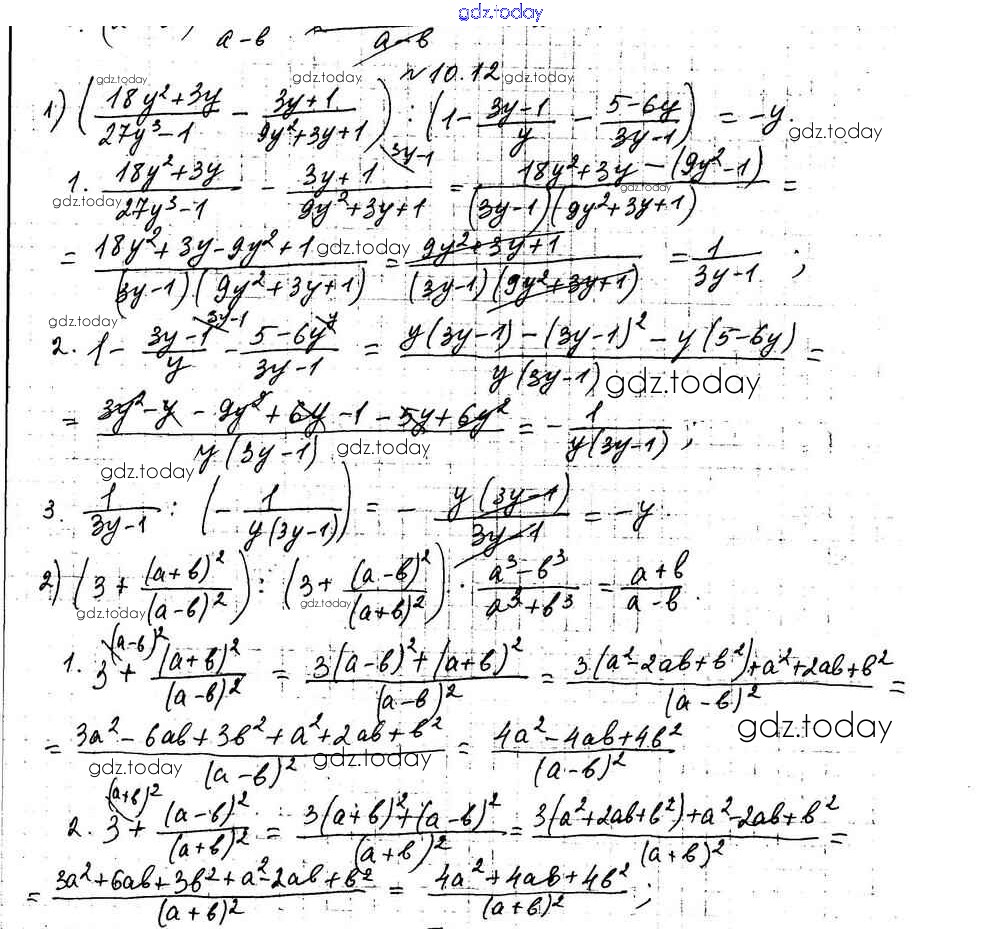 gdz.today
a-в a-в
№10.12
1) ((18y²+3y)/(27y³-1) - (3y+1)/(9y²+3y+1)) : (1 - (3y-1)/y - (5-6y)/(3y-1)) = -y.
1. (18y²+3y)/(27y³-1) - (3y+1)/(9y²+3y+1) = (18y²+3y-(9y²-1))/((3y-1)(9y²+3y+1)) =
= (18y²+3y-9y²+1)/((3y-1)(9y²+3y+1)) = (9y²+3y+1)/((3y-1)(9y²+3y+1)) = 1/(3y-1);
2. 1 - (3y-1)/y - (5-6y)/(3y-1) = (y(3y-1)-(3y-1)²-y(5-6y))/(y(3y-1)) =
= (3y²-y-9y²+6y-1-5y+6y²)/(y(3y-1)) = -1/(y(3y-1));
3. 1/(3y-1) : (-1/(y(3y-1))) = -(y(3y-1))/(3y-1) = -y.
2) (3 + (a+в)²/(a-в)²) : (3 + (a-в)²/(a+в)²) · (a³-в³)/(a³+в³) = (a+в)/(a-в).
1. 3 + (a+в)²/(a-в)² = (3(a-в)²+(a+в)²)/(a-в)² = (3(a²-2aв+в²)+a²+2aв+в²)/(a-в)² =
= (3a²-6aв+3в²+a²+2aв+в²)/(a-в)² = (4a²-4aв+4в²)/(a-в)²
2. 3 + (a-в)²/(a+в)² = (3(a+в)²+(a-в)²)/(a+в)² = (3(a²+2aв+в²)+a²-2aв+в²)/(a+в)² =
= (3a²+6aв+3в²+a²-2aв+в²)/(a+в)² = (4a²+4aв+4в²)/(a+в)²;